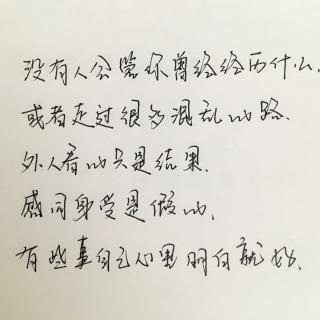 没有人会管你曾经经历什么.
或者走过很多混乱的路.
外人看的只是结果.
感同身受是假的,
有些事自己心里明白就好.